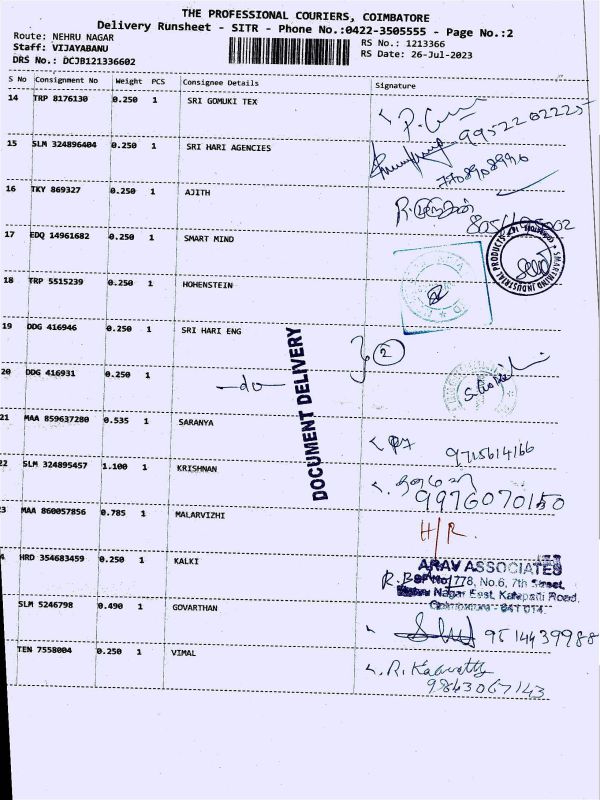 THE PROFESSIONAL COURIERS, COIMBATORE
Delivery Runsheet - SITR - Phone No.:0422-3505555 - Page No.:2
Route: NEHRU NAGAR
RS No.: 1213366
Staff: VIJAYABANU
RS Date: 26-Jul-2023
DRS No.: DCJB121336602
S No Consignment No Weight PCS Consignee Details Signature
14 TRP 8176130 0.250 1 SRI GOMUKI TEX
9952202225
15 SLM 324896404 0.250 1 SRI HARI AGENCIES
7708908996
16 TKY 869327 0.250 1 AJITH
17 EDQ 14961682 0.250 1 SMART MIND
18 TRP 5515239 0.250 1 HOHENSTEIN
19 DDG 416946 0.250 1 SRI HARI ENG
2
20 DDG 416931 0.250 1 -do-
DOCUMENT DELIVERY
21 MAA 859637280 0.535 1 SARANYA
9715614166
22 SLM 324895457 1.100 1 KRISHNAN
9976070150
3 MAA 860057856 0.785 1 MALARVIZHI
H/R.
HRD 354683459 0.250 1 KALKI
ARAV ASSOCIATES
778, No.6, 7th Street,
Nagar East, Kalapatti Road,
Coimbatore - 641 014.
SLM 5246798 0.490 1 GOVARTHAN
9514439988
TEN 7558004 0.250 1 VIMAL
9843067143